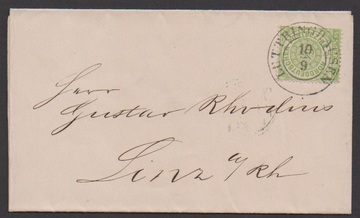 LÜTTRINGHAUSEN
10
9
Herrn
Gustav Rhodius
Linz a/Rh